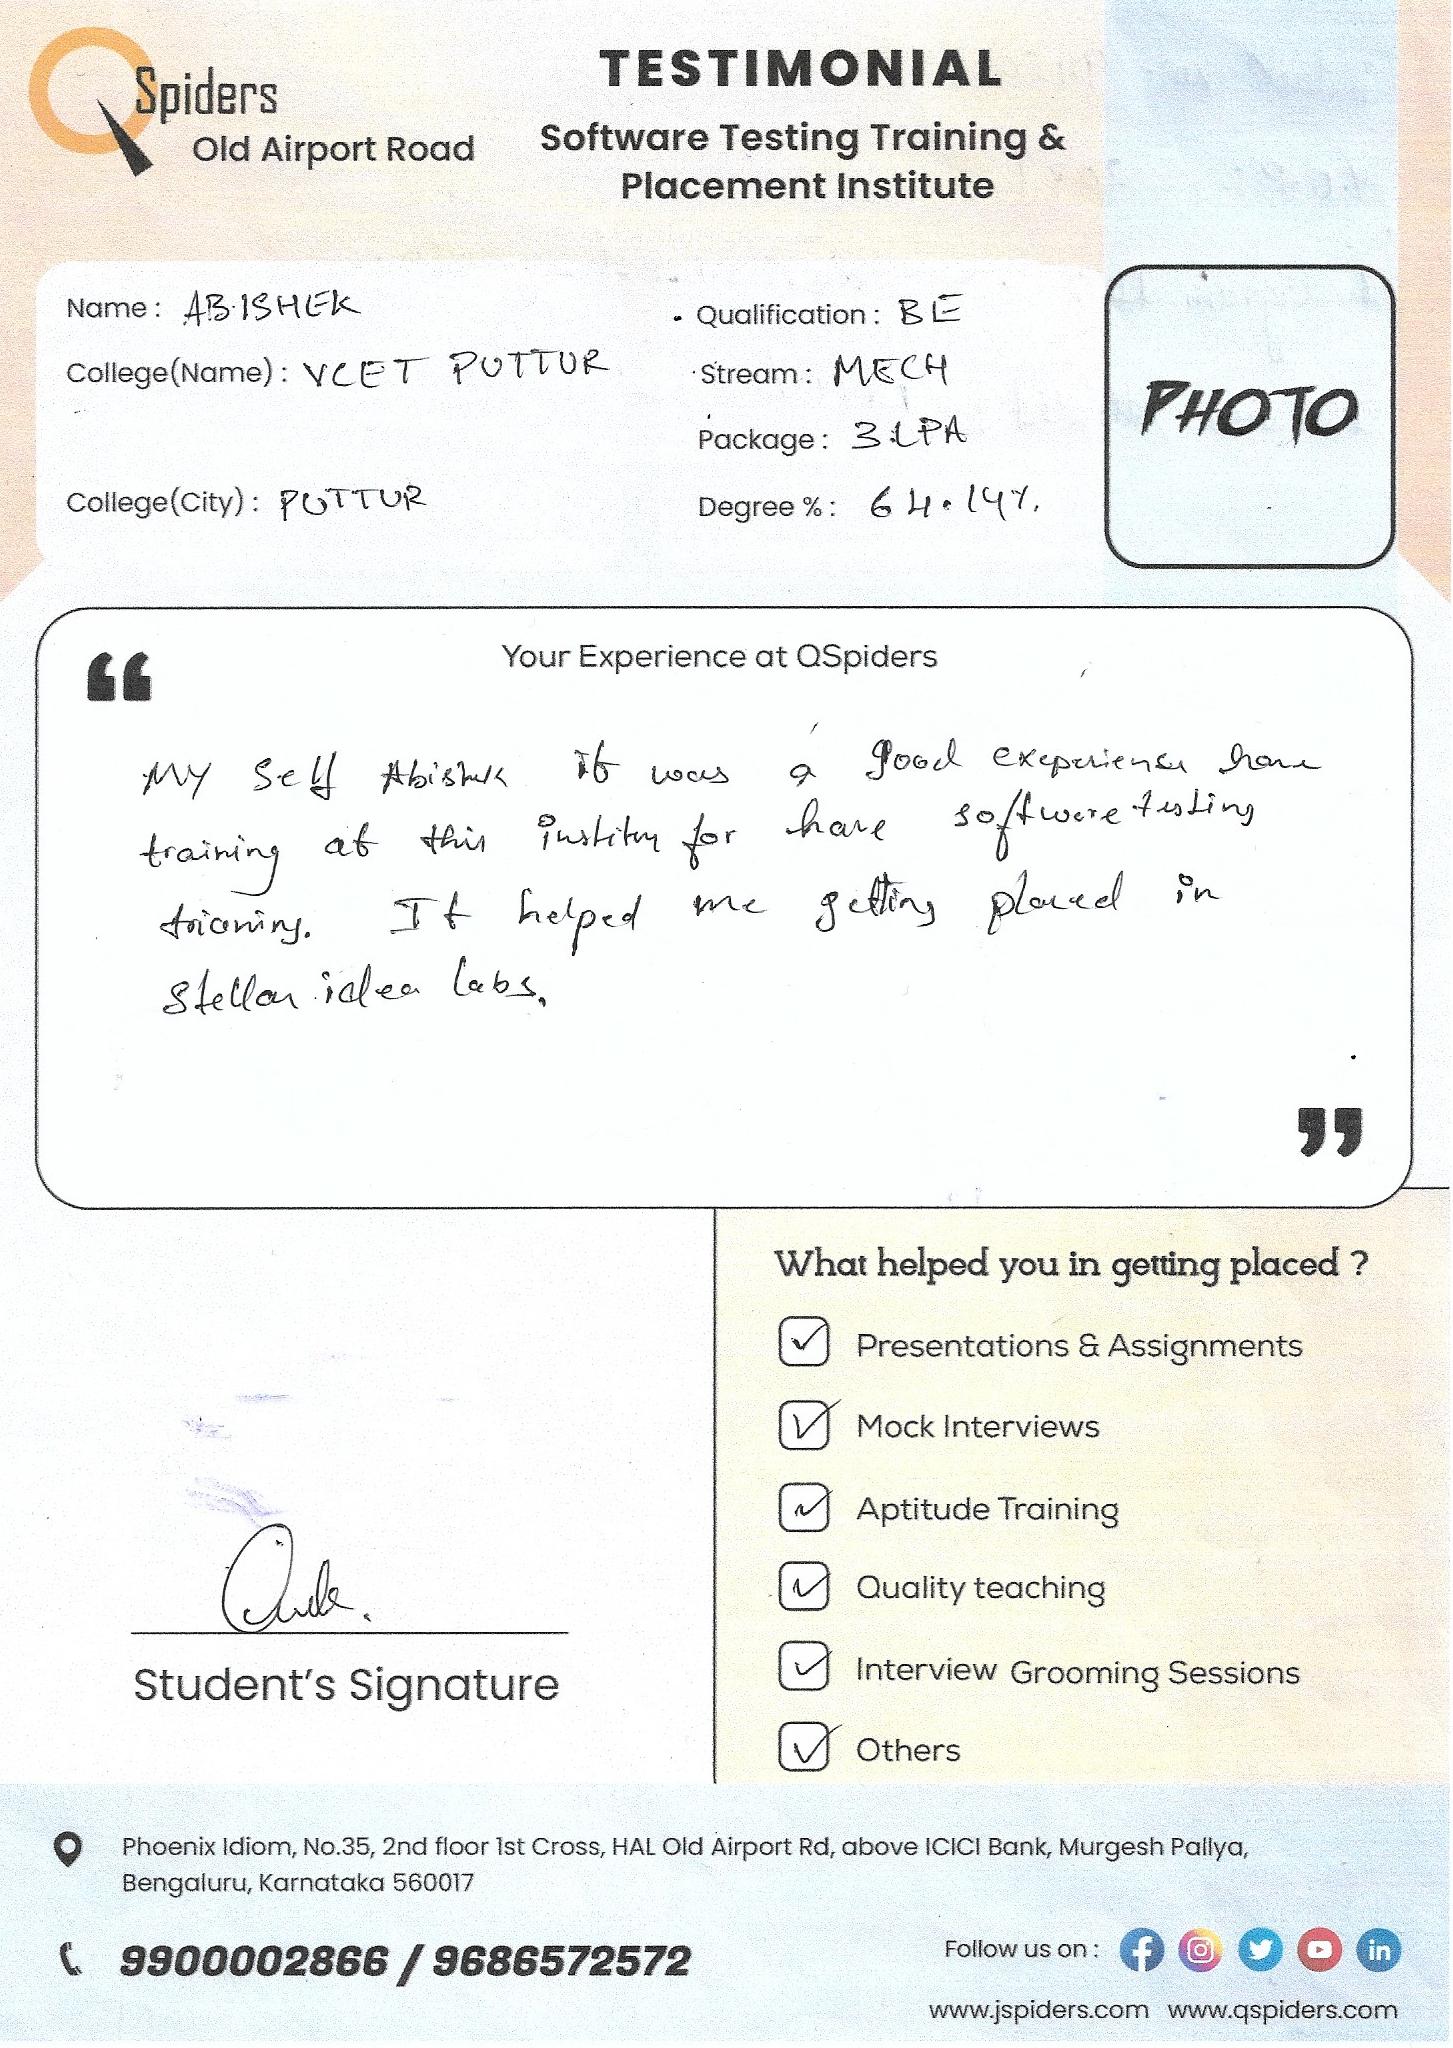 QSpiders
Old Airport Road
TESTIMONIAL
Software Testing Training &
Placement Institute
Name : ABISHEK
College(Name) : VCET PUTTUR
College(City) : PUTTUR
Qualification : BE
Stream : MECH
Package : 3 LPA
Degree % : 64.14%.
PHOTO
Your Experience at QSpiders
“
MY Self Abishek it was a good exeperiense have
training at this for have software testing
It helped me getting placed in
Stellar idea labs.
”
Student's Signature
What helped you in getting placed ?
Presentations & Assignments
Mock Interviews
Aptitude Training
Quality teaching
Interview Grooming Sessions
Others
Phoenix Idiom, No.35, 2nd floor 1st Cross, HAL Old Airport Rd, above ICICI Bank, Murgesh Pallya,
Bengaluru, Karnataka 560017
9900002866 / 9686572572
Follow us on :
www.jspiders.com www.qspiders.com